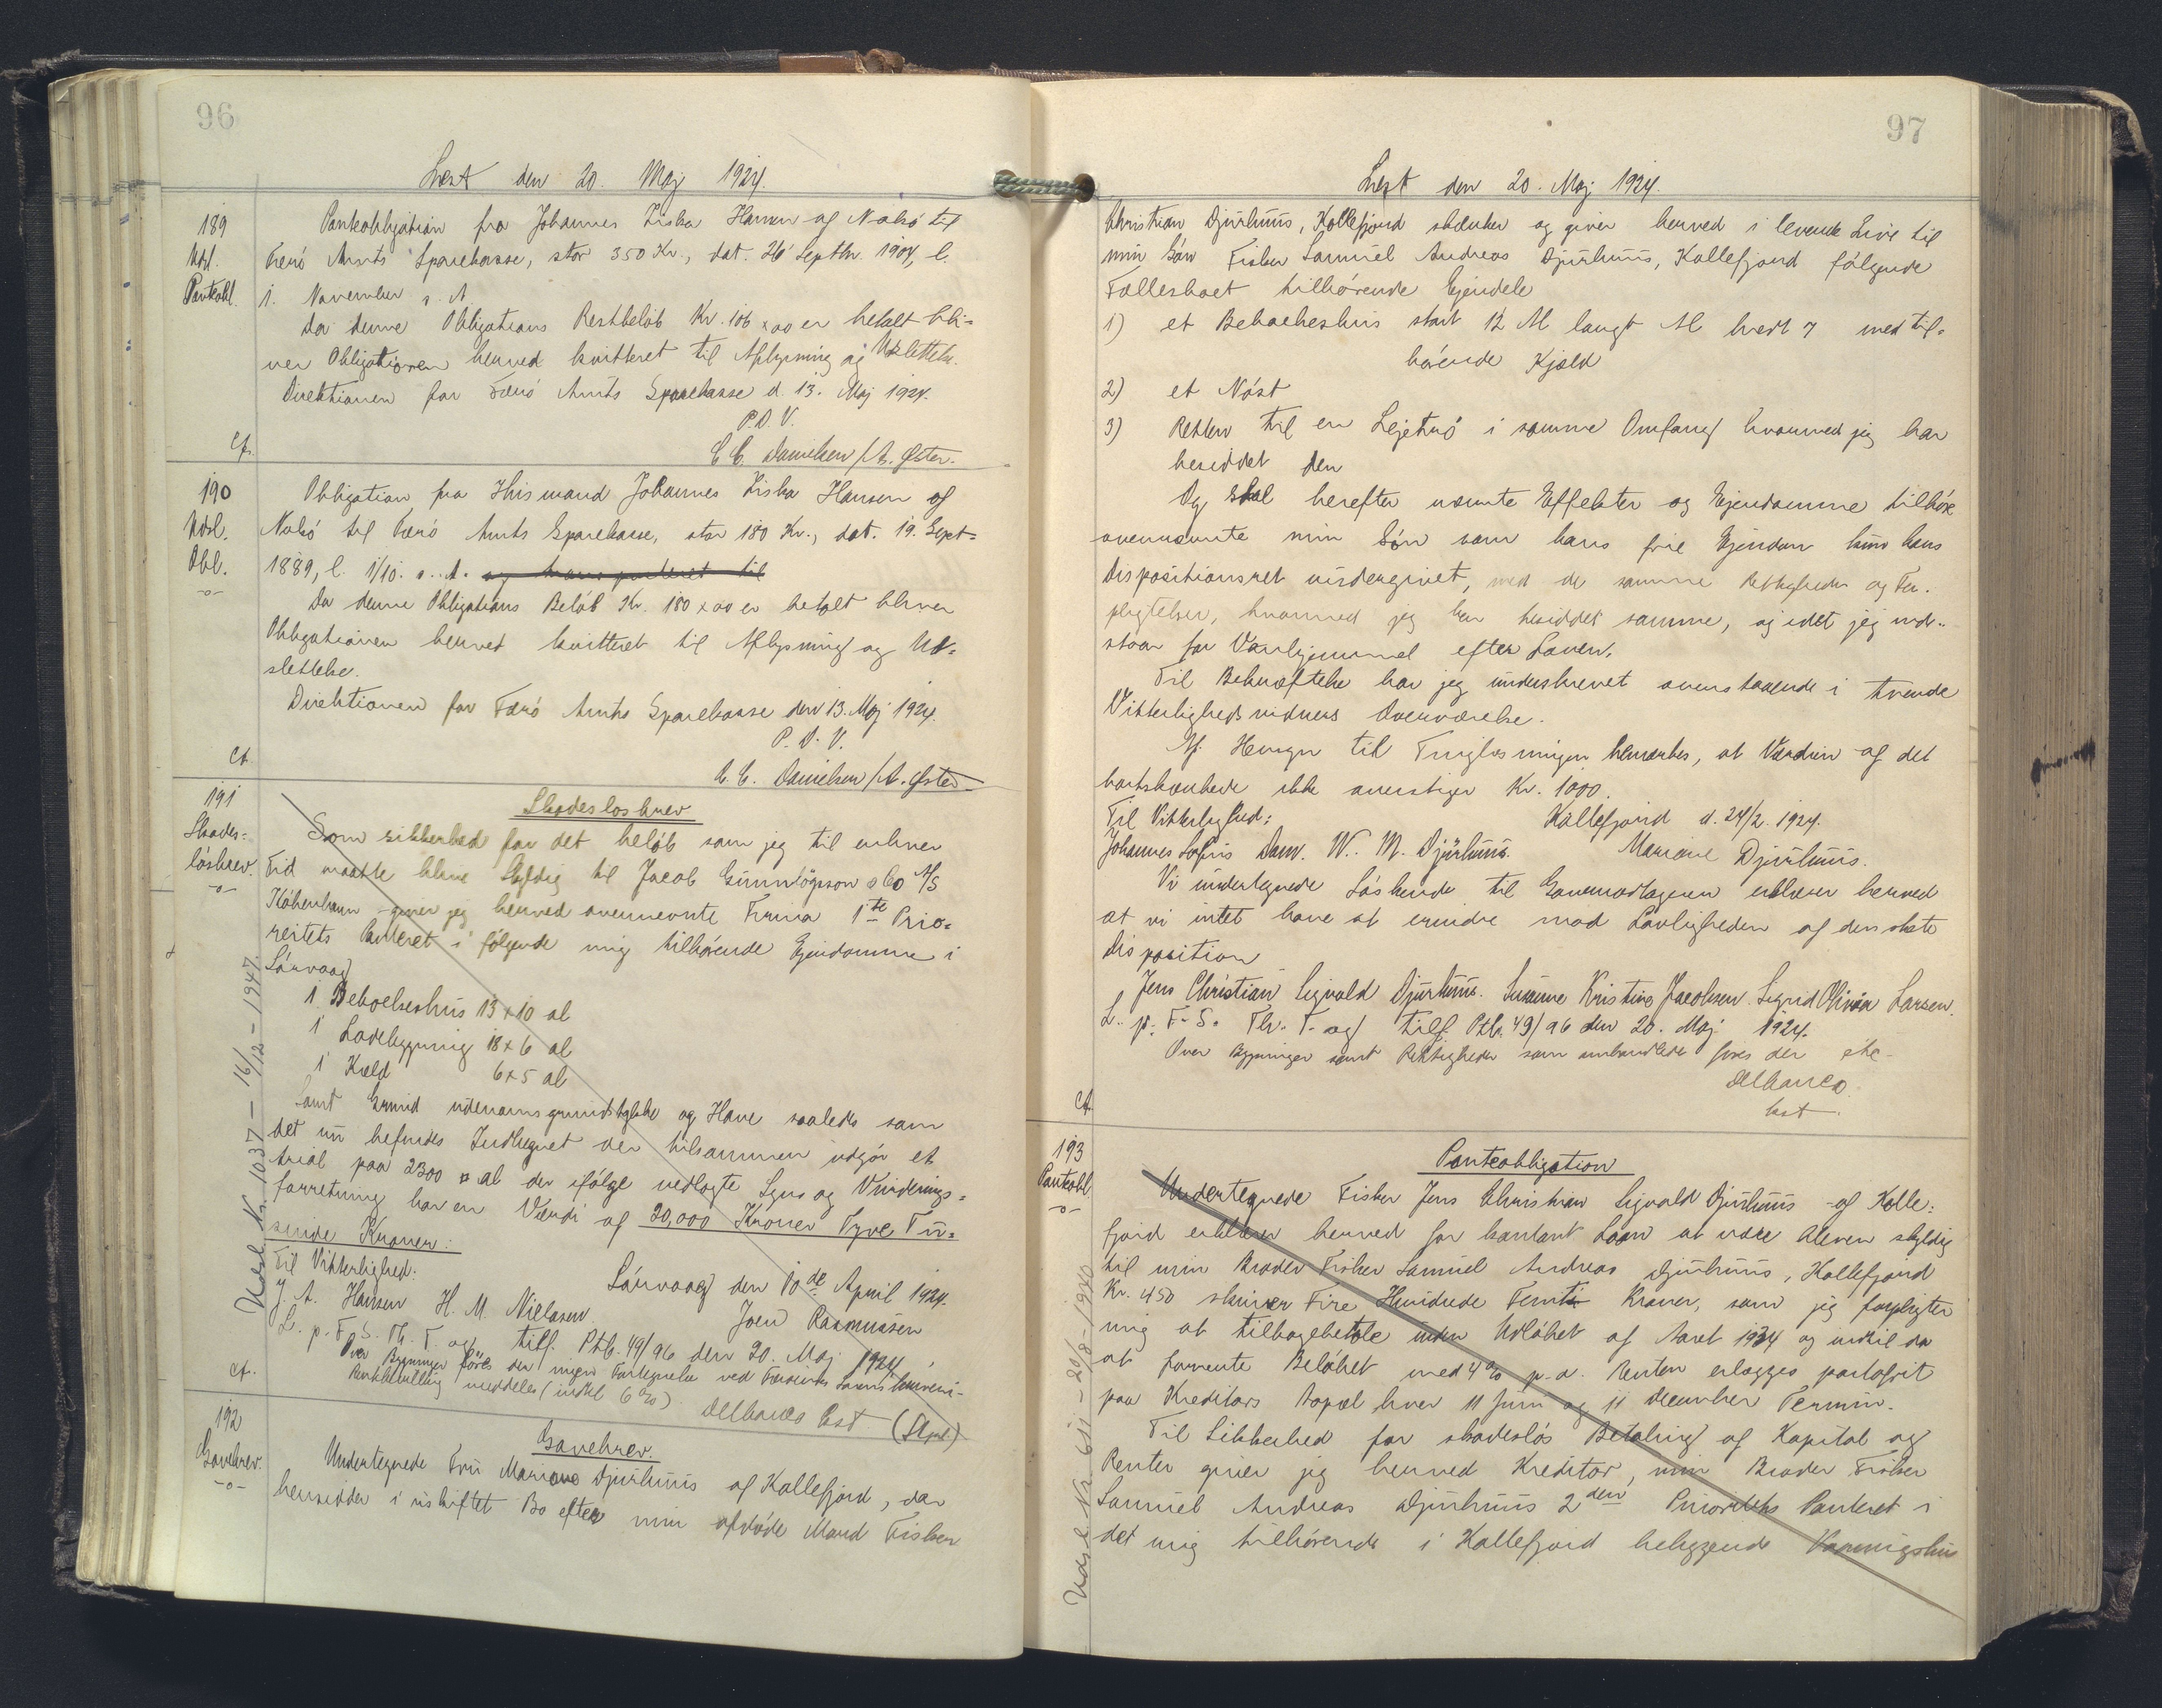 96
Læst den 20. Maj 1924.
189
Udsl.
Pantobl.
Pantobligation fra Johannes Ziska Hansen af Nolsö til
Færö Amts Sparekasse, stor 350 Kr., dat. 26 Septbr. 1904, l.
1. November s. A.
Da denne Obligations Restbelöb Kr. 106 x 00 er betalt bli-
ver Obligationen herved kvitteret til Aflysning og Udslettelse.
Direktionen for Færö Amts Sparekasse d. 13. Maj 1924.
P.D.V.
C. C. Danielsen / A. Öster.
Cf.
190
Udsl.
Obl.
-o-
Obligation fra Husmand Johannes Ziska Hansen af
Nolsö til Færö Amts Sparekasse, stor 180 Kr., dat. 19. Sept-
1889, l. 1/10. s. A. og transporteret til
Da denne Obligations Belöb Kr. 180 x 00 er betalt bliver
Obligationen herved kvitteret til Aflysning og Ud-
slettelse.
Direktionen for Færö Amts Sparekasse den 13. Maj 1924.
P. D. V.
C. C. Danielsen / A. Öster
Cf.
191
Skades-
lösbrev.
-o-
Skadeslosbrev
Som sikkerhed for det belöb som jeg til enhver
Tid maatte blive skyldig til Jacob Gunnlögsson & Co A/S
Köbenhavn giver jeg herved ovennevnte Firma 1ste Prio-
reitets Panteret i fölgende mig tilhörende Ejendomme i
Sörvaag
1 Beboelseshus 13 x 10 al
1 Ladebygning 18 x 6 al
1 Kæld 6 x 5 al
Samt Grund udenomsgrundstykke og Have saaledes som
det nu befindes Indhegnet der tilsammen udgör et
Areal paa 2300 □ al der ifölge vedlagte Syns og Vurderings-
forretning har en Værdi af 20,000 Kroner Tyve Tu-
sinde Kroner:
Til Vitterlighed:
Sörvaag den 10de April 1924.
J. A. Hansen H. M. Nielasen
Joen Rasmussen
L. p. F. S. Th. T. og tilf. Ptb. 49/96 den 20. Maj 1924.
Over Bygninger föres der ingen Fortegnelse ved Færöernes
Panthæftelser meddeles (indtil 6%) Delbanco Cst. (Stpl)
Cf.
Udsl. Nr. 1037 - 16/12 - 1947.
192
Gavebrev.
-o-
Gavebrev.
Undertegnede Fru Mariane Djurhuus af Kollefjord, der
hensidder i uskiftet Bo efter min afdöde Mand Fisker
97
Læst den 20. Maj 1924.
Christian Djurhuus, Kollefjord skænker og giver herved i levende Live til
min Sön Fisker Samuel Andreas Djurhuus, Kollefjord fölgende
Fællesboet tilhörende Ejendele
1) et Beboelseshus stort 12 Al langt Al bredt 7 med til-
hörende Kjæld
2) et Nöst
3) Retten til en Lejetrö i samme Omfang hvormed jeg har
besiddet den
Og skal herefter nævnte Effekter og Ejendomme tilhöre
ovennævnte min Sön som hans frie Ejendom kun hans
Dispositionsret undergivet, med de samme Rettigheder og For-
pligtelser, hvormed jeg har besiddet samme, og idet jeg ind-
staar for Vanhjemmel efter Loven.
Til Bekræftelse har jeg underskrevet ovenstaaende i tvende
Vitterlighedsvidners Overværelse.
Af Hensyn til Tinglæsningen bemærkes, at Værdien af det
bortskænkede ikke overstiger Kr. 1000.
Til Vitterlighed: Kollefjord d. 24/2. 1924.
Johannes Dam. W. M. Djurhuus. Mariane Djurhuus.
Vi undertegnede Söskende til Gavemodtageren erklærer herved
at vi intet have at erindre mod Lovligheden af den skete
Disposition
Jens Christian Sigvald Djurhuus. Susanne Kristine Jacobsen. Sigrid Olivia Larsen.
L. p. F. S. Th. T. og tilf. Ptb. 49/96 den 20. Maj 1924.
Over Bygninger samt Rettigheder som omhandlede föres der ikke
Delbanco.
Cst.
Cf.
193
Pantobl.
-o-
Pantobligation
Undertegnede Fisker Jens Christian Sigvald Djurhuus af Kolle-
fjord erklærer herved for kontant Laan at være bleven skyldig
til min Broder Fisker Samuel Andreas Djurhuus, Kollefjord
Kr. 450 skriver Fire Hundrede Femti Kroner, som jeg forpligter
mig at tilbagebetale inden Udlöbet af Aaret 1934 og indtil da
at forrente Belöbet med 4% p. a. Renten erlægges portofrit
paa Kreditors Bopæl hver 11 Juni og 11 December Termin.
Til Sikkerhed for skadeslös Betaling af Kapital og
Renter giver jeg herved Kreditor, min Broder Fisker
Samuel Andreas Djurhuus 2den Prioritets Panteret i
det mig tilhörende i Kollefjord beliggende Vaaningshus
Udsl. Nr. 611 - 20/8 - 1940